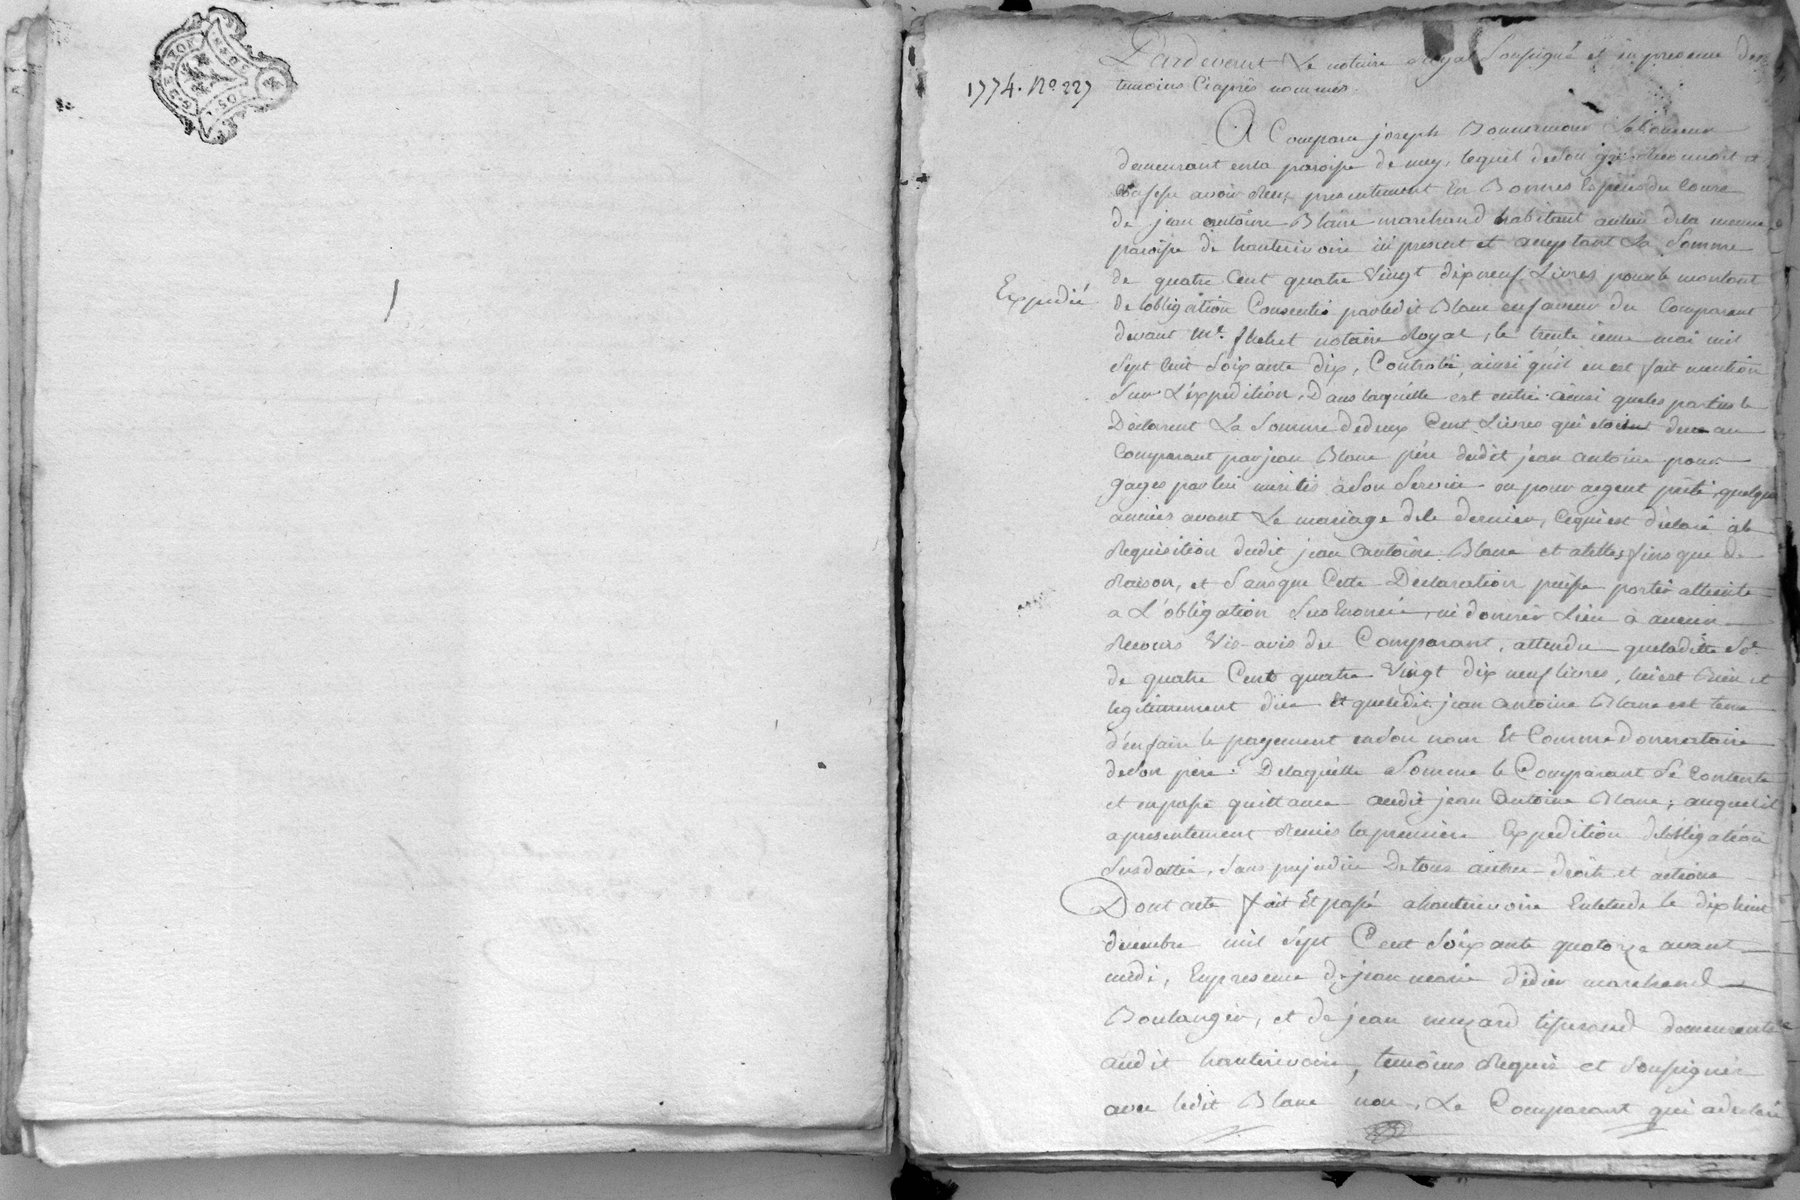 G. DE LYON
2 SOLS
1774. No. 227
Expedié
Pardevant Le notaire royal Soussigné et en presence des
temoins Ciaprès nommés.
A Comparu joseph Bonnemour
demeurant en la paroisse de mey, lequel de son gré reconnoit et
Confesse avoir reçu presentement En Bonnes Espèces du Cours
de jean antoine Blanc marchand habitant au lieu de la meme
paroisse de hauterivoire ici present et acceptant La Somme
de quatre Cent quatre Vingt dix neuf Livres pour le montant
de lobligation Consentie par ledit Blanc en faveur du Comparant
devant Me. notaire Royal, le trente ieme mai mil
Sept Cent Soixante dix, Controlé, ainsi quil en est fait mention
Sur L'éxpedition, Dans laquelle est entré ainsi que les parties le
Déclarent La Somme de deux Cent Livres qui etoient dues au
Comparant par jean Blanc père dudit jean antoine pour
gages par lui merités à Son Service ou pour argent prêté, quelques
années avant Le mariage de le dernier, ce qui est declaré à la
Requisition dudit jean antoine Blanc et a telles fins que de
Raison, et Sans que Cette Déclaration puisse porter atteinte
a L'obligation Sus Enoncée, ni donner Lieu à aucun
Recours Vis-avis du Comparant, attendu que ladite Se.
de quatre Cent quatre Vingt dix neuf livres, lui est bien et
legitimement düe Et que ledit jean antoine Blanc est tenu
d'en faire le payement en Son nom Et Comme donnataire
de Son père. De laquelle Somme le Comparant Se Contente
et en passe quittance audit jean antoine Blanc; auquel il
a presentement Remis la première Expedition de lobligation
Susdattée, Sans prejudice De tous autres droits et actions
Dont acte fait Et passé a hauterivoire Etude le dix huit
decembre mil Sept Cent Soixante quatorze avant
midi, En presence de jean marie didier marchand
Boulanger, et de jean muzard tisserand demeurants
audit hauterivoire, temoins Requis et Soussignés
avec ledit Blanc non, Le Comparant qui a declaré